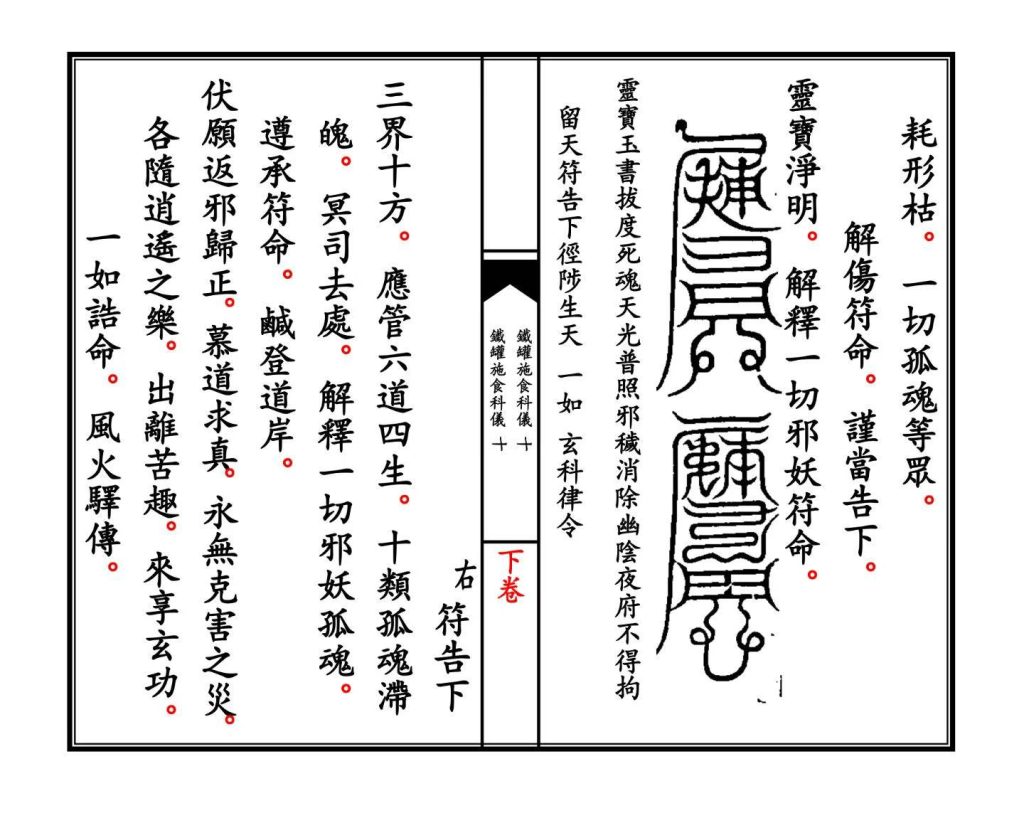 耗形枯。一切孤魂等眾。
解傷符命。謹當告下。
靈寶淨明。解釋一切邪妖符命。
靈寶玉書拔度死魂天光普照邪穢消除幽陰夜府不得拘
留天符告下徑陟生天 一如 玄科律令
鐵罐施食科儀 十
鐵罐施食科儀 十
下卷
右符告下
三界十方。應管六道四生。十類孤魂滯
魄。冥司去處。解釋一切邪妖孤魂。
遵承符命。鹹登道岸。
伏願返邪歸正。慕道求真。永無克害之災。
各隨逍遙之樂。出離苦趣。來享玄功。
一如誥命。風火驛傳。